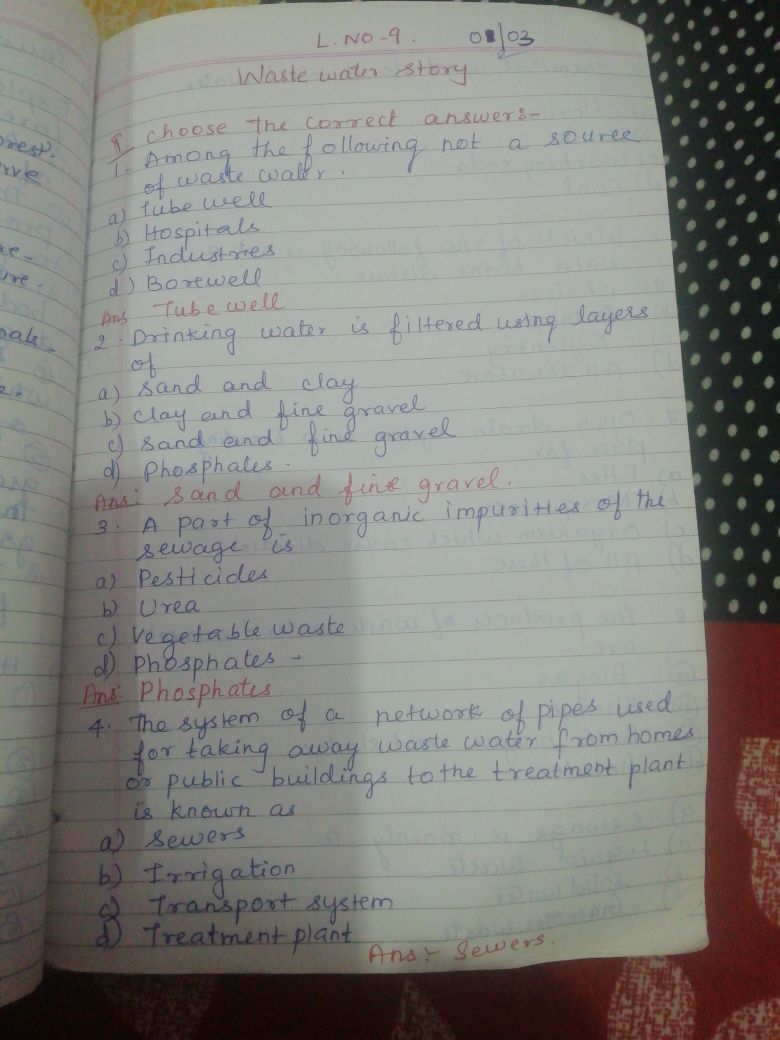 L.NO-9. 01/03
Waste water story
I choose the correct answers:-
1. Among the following not a source
of waste water.
a) Tube well
b) Hospitals
c) Industries
d) Borewell
Ans Tube well
2. Drinking water is filtered using layers
of
a) Sand and clay
b) Clay and fine gravel
c) Sand and fine gravel
d) Phosphates.
Ans: Sand and fine gravel.
3. A part of inorganic impurities of the
sewage is
a) Pesticides
b) Urea
c) Vegetable waste
d) Phosphates -
Ans: Phosphates
4. The system of a network of pipes used
for taking away waste water from homes
or public buildings to the treatment plant
is known as
a) Sewers
b) Irrigation
c) Transport system
d) Treatment plant
Ans:- Sewers.